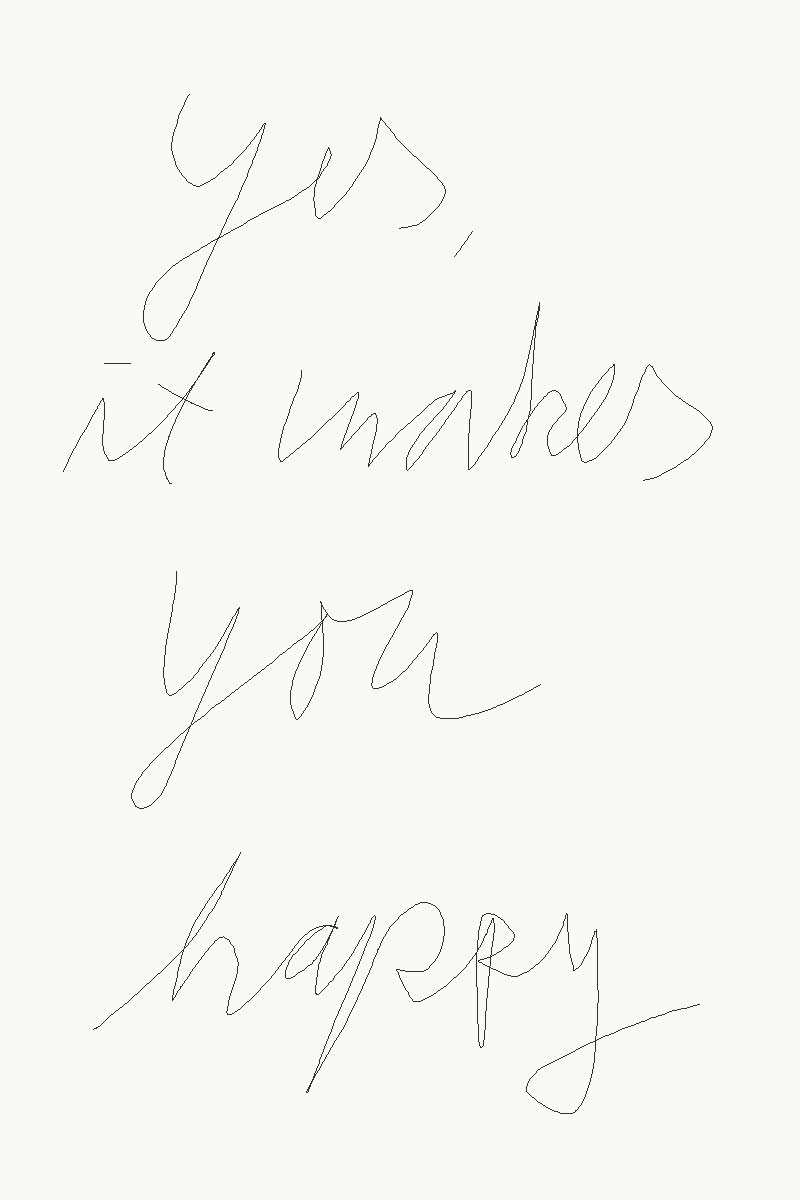 yes,
it makes
you
happy